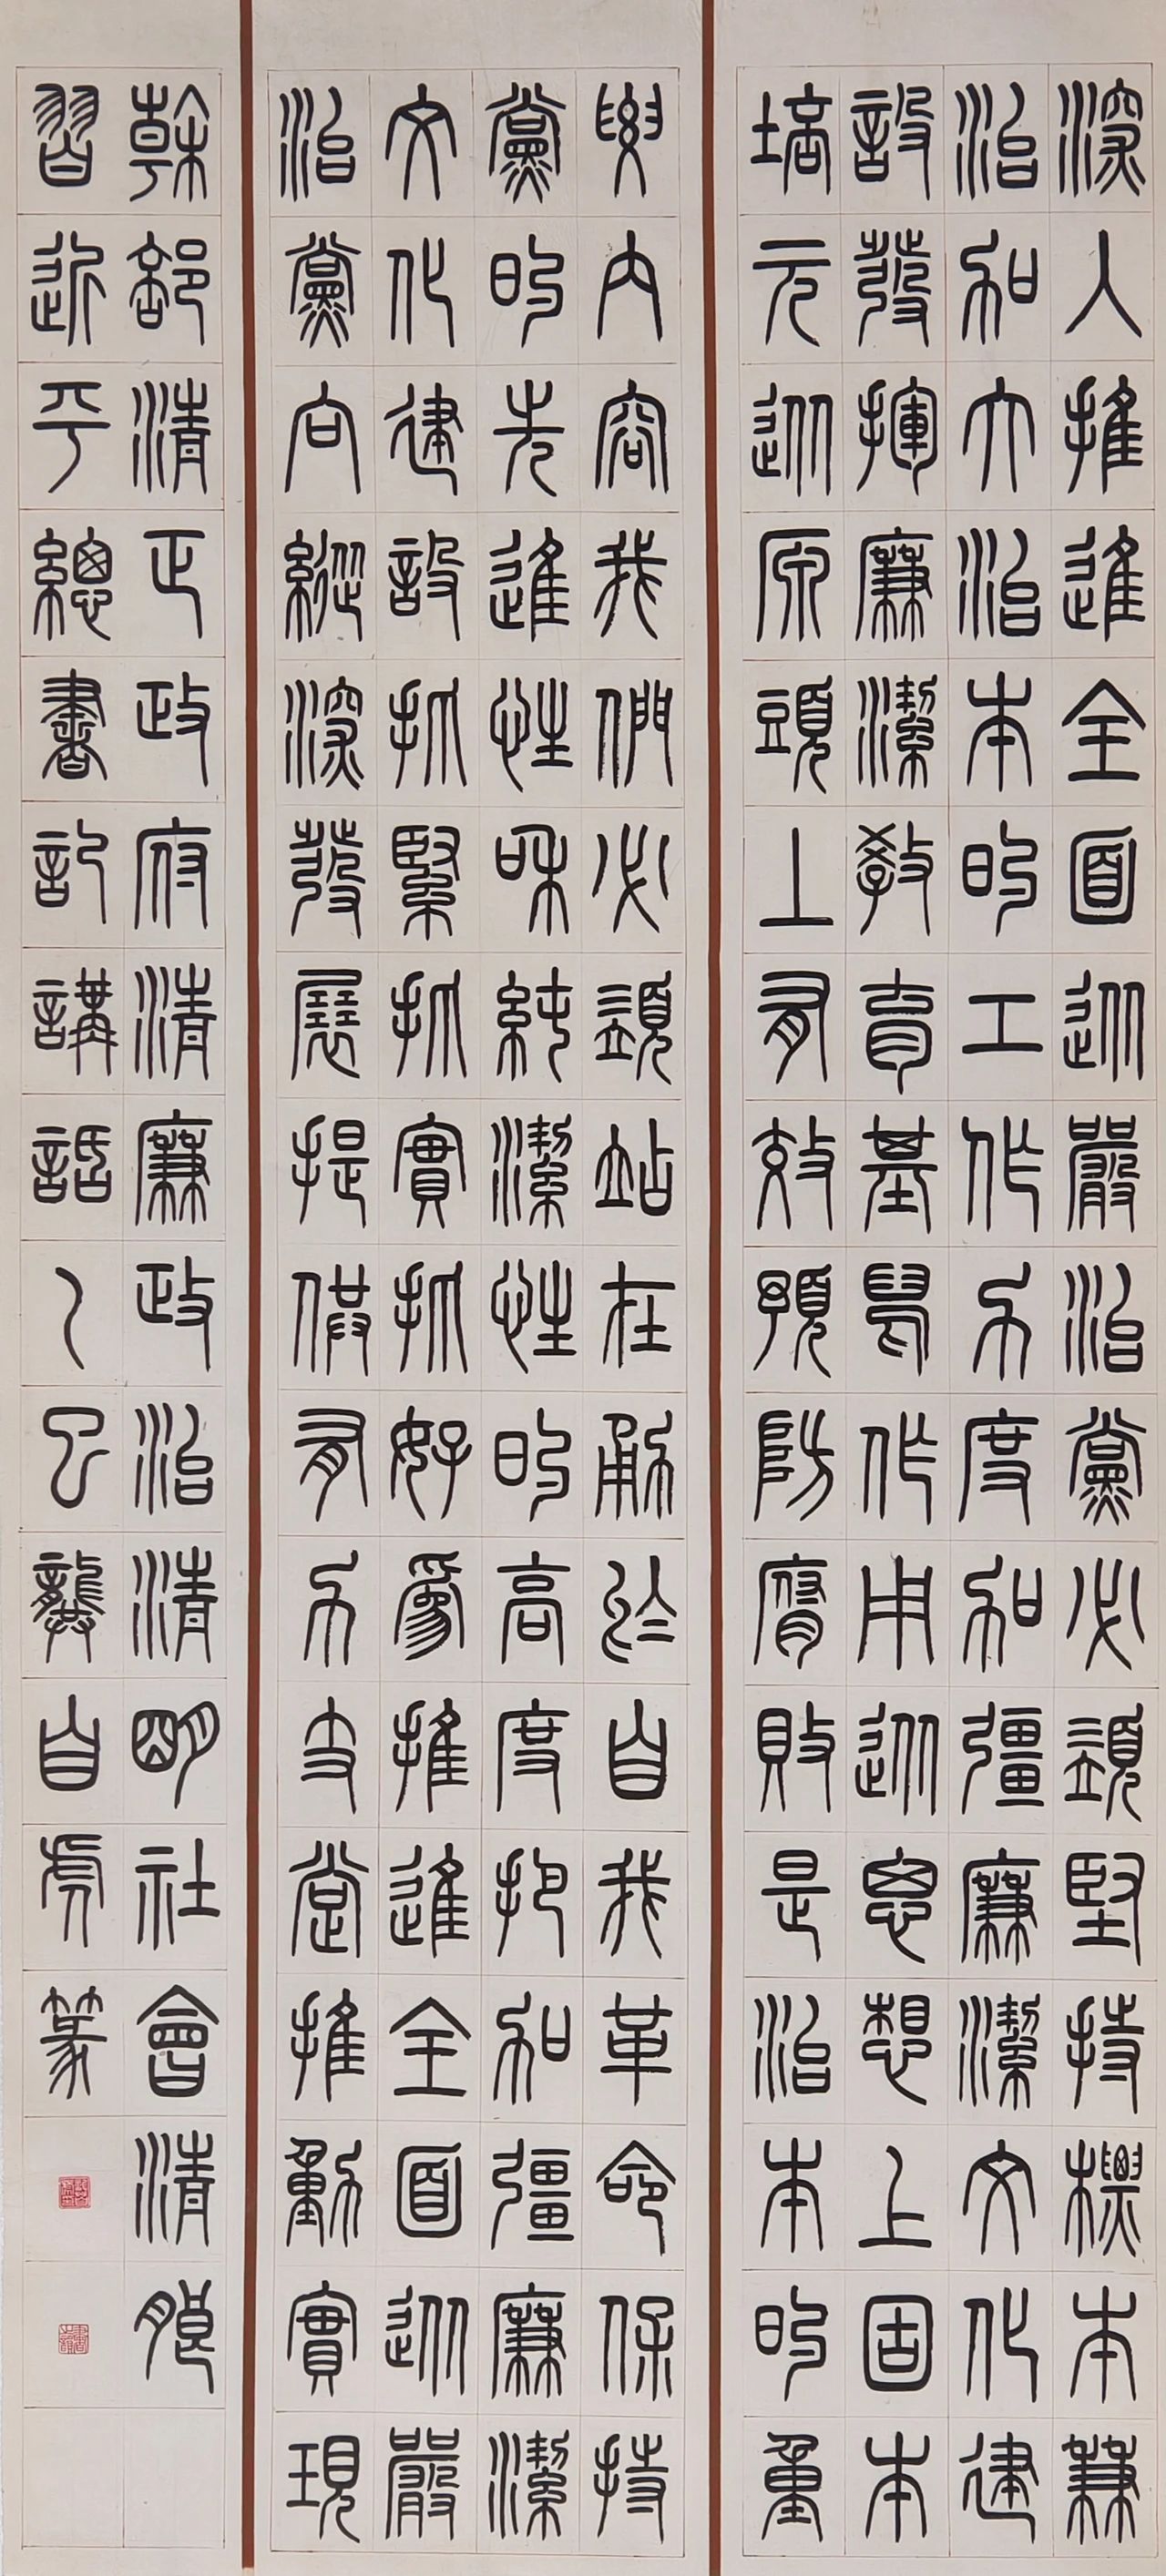 深入推進全面從嚴治黨必須堅持標本兼
治加大治本的工作力度加強廉潔文化建
設發揮廉潔教育基礎作用從思想上固本
培元從源頭上有效預防腐敗是治本的重
要內容我們必須站在勇於自我革命保持
黨的先進性和純潔性的高度把加強廉潔
文化建設抓緊抓實抓好為推進全面從嚴
治黨向縱深發展提供有力支撐推動實現
幹部清正政府清廉政治清明社會清朗
習近平總書記講話乙巳龔自虎篆